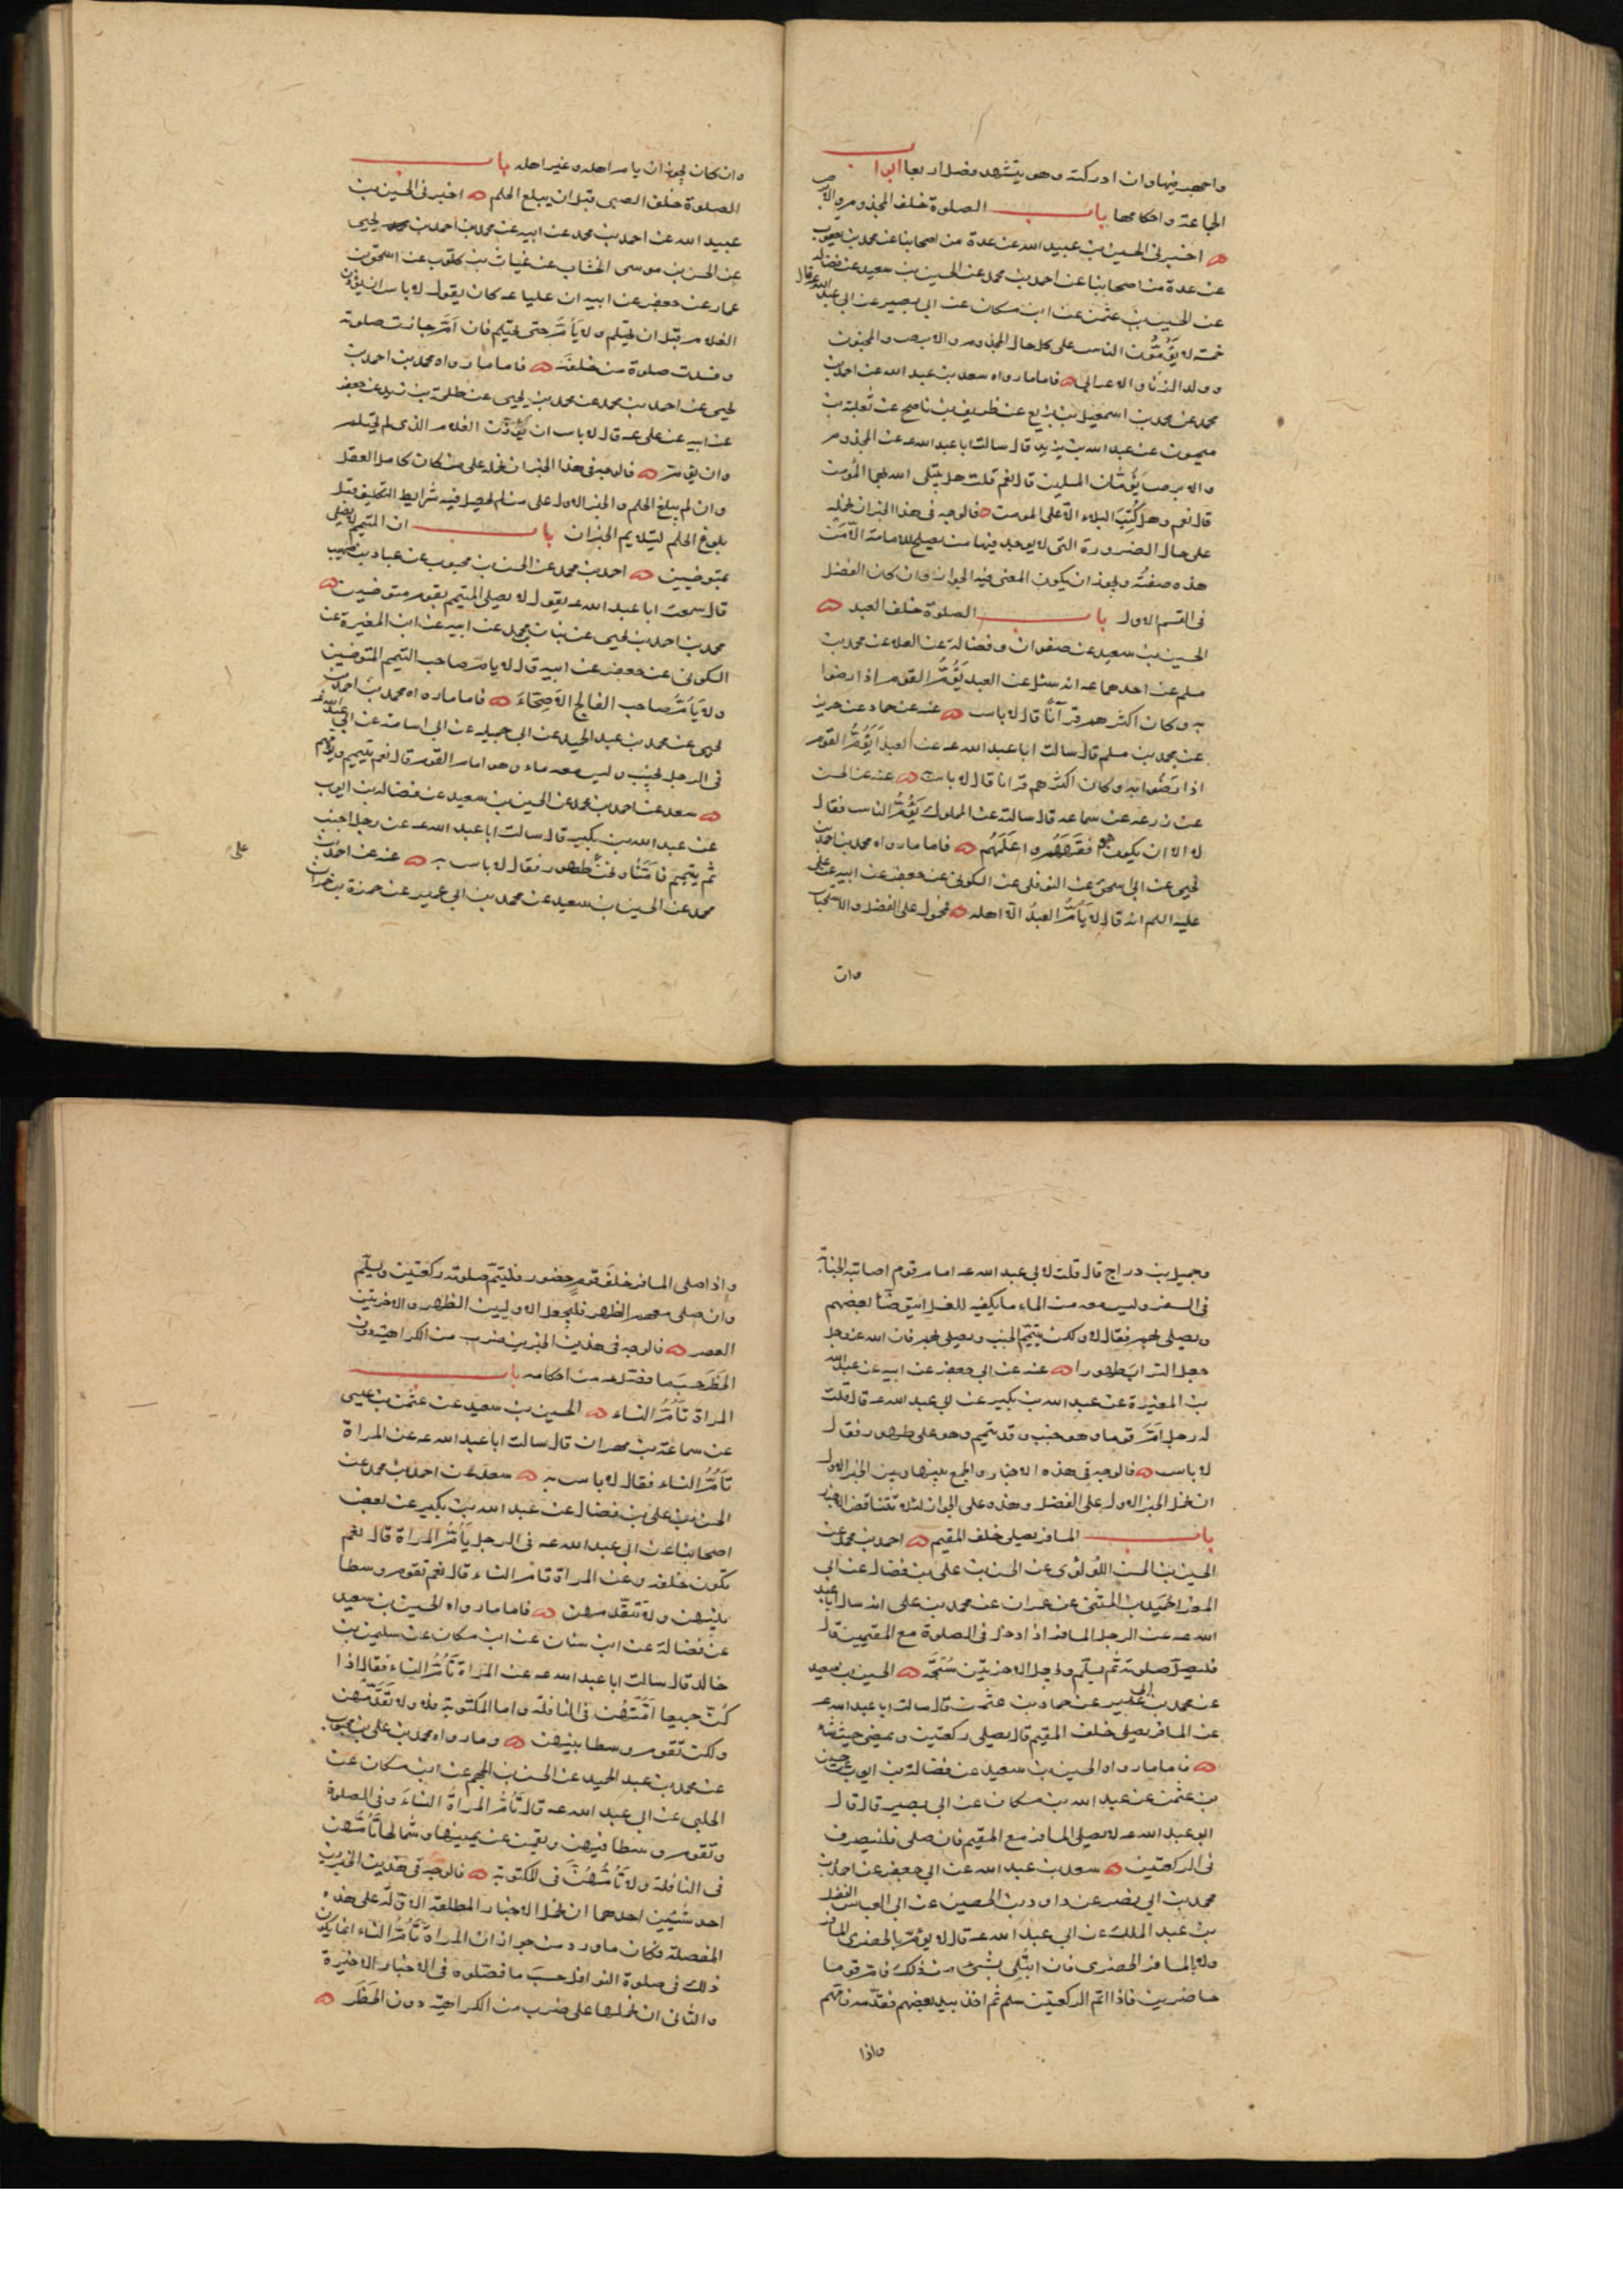 واجهر فيها وان ادركته وهو يتشهد فصل اربعا ابواب
الجماعة واحكامها باب الصلوة خلف المجذوم والابرص
اخبرنى الحسين بن عبيد الله عن عدة من اصحابنا عن محمد بن يعقوب
عن عدة من اصحابنا عن احمد بن محمد عن الحسين بن سعيد عن فضالة
عن الحسين بن عثمن عن ابن مسكان عن ابى بصير عن ابى عبد الله ع قال
خمسة لا يَؤُمُّون الناس على كل حال المجذوم والابرص والمجنون
وولد الزنا والاعرابى فاما ما رواه سعد بن عبد الله عن احمد بن
محمد عن محمد بن اسمعيل بن بزيع عن ظريف بن ناصح عن ثعلبة بن
ميمون عن عبد الله بن يزيد قال سالت ابا عبد الله عـ عن المجذوم
والابرص يَؤُمّان المسلمين قال نعم قلت هل يبتلى الله بهما المؤمن
قال نعم وهل كُتِبَ البلاء الّا على المومن فالوجه فى هذا الخبر ان نحمله
على حال الضرورة التى لا يوجد فيها من يصلح للامامة الّا مَن
هذه صفتُه ويجوز ان يكون المعنى فيه الجواز وان كان الفضل
فى القسم الاول باب الصلوة خلف العبد
الحسين بن سعيد عن صفوان وفضالة عن العلا عن محمد بن
مسلم عن احدهما عـ انه سئل عن العبد يَؤُمُّ القوم اذا رضوا
به وكان اكثرهم قرآنًا قال لا باس عنه عن حماد عن حريز
عن محمد بن مسلم قال سالت ابا عبد الله عـ عن العبد يَؤُمُّ القوم
اذا رَضُوا به وكان اكثرهم قرانا قال لا باس عنه عن الحسن
عن زرعه عن سماعه قال سالته عن المملوك يَؤُمُّ الناس فقال
لا الا ان يكون هو افقَهَهُم واعلَمَهُم فاما ما رواه محمد بن احمد بن
يحيى عن ابى اسحق عن النوفلى عن السكونى عن جعفر عن ابيه عن على
عليه السلم انه قال لا يَاُمُّ العبدُ الّا اهله فمحمول على الفضل والاستحباب
وان
وان كان يجوز ان يام اهله وغير اهله باب
الصلوة خلف الصبى قبل ان يبلغ الحلم اخبرنى الحسين بن
عبيد الله عن احمد بن محمد عن ابيه عن محمد بن احمد بن يحيى
عن الحسن بن موسى الخشاب عن غياث بن كلوب عن اسحق بن
عمار عن جعفر عن ابيه ان عليا عـ كان يقول لا باس ان يؤذن
الغلام قبل ان يحتلم ولا يَأُمُّ حتى يحتلم فان اَمَّ جازت صلوته
وفسدت صلوة من خلفَه فاما ما رواه محمد بن احمد بن
يحيى عن احمد بن محمد عن محمد بن يحيى عن طلحة بن زيد عن جعفر
عن ابيه عن على عـ قال لا باس ان يُؤَذّن الغلام الذى لم يحتلم
وان يؤم فالوجه فى هذا الخبر ان نحمله على من كان كامل العقل
وان لم يبلغ الحلم والخبر الاول على من لم يحصل فيه شرايط التكليف قبل
بلوغ الحلم ليتلايم الخبران باب ان المتيمم لا يصلى
بمتوضيين احمد بن محمد عن الحسن بن محبوب عن عباد بن صهيب
قال سمعت ابا عبد الله عـ يقول لا يصلى المتيمم بقوم متوضيين
محمد بن احمد بن يحيى عن بنان بن محمد عن ابيه عن ابن المغيرة عن
السكونى عن جعفر عن ابيه قال لا يام صاحب التيمم المتوضين
ولا يَاُمُّ صاحب الفالج الاَصِحّاءَ فاما ما رواه محمد بن احمد بن
يحيى عن محمد بن عبد الحميد عن ابى جميله عن ابى اسامة عن ابى عبد الله عـ
فى الرجل يُجنِب وليس معه ماء وهو امام القوم قال نعم يتيمم ويؤمهم
سعد عن احمد بن محمد عن الحسين بن سعيد عن فضالة بن ايوب
عن عبد الله بن بكير قال سالت ابا عبد الله عـ عن رجل اجنب
ثم يتيمم فاَمَّنا ونحن على طهور فقال لا باس به عنه عن احمد بن
محمد عن الحسين بن سعيد عن محمد بن ابى عمير عن حمزة بن حمران
على
وجميل بن دراج قال قلت لابى عبد الله عـ امام قوم اصابته الجنابة
فى السفر وليس معه من الماء ما يكفيه للغسل ايتوضّا بعضهم
ويصلى بهم فقال لا ولكن يتيمّم الجنب ويصلى بهم فان الله عز وجل
جعل الترابَ طهورا عنه عن ابى جعفر عن ابيه عن عبد الله
بن المغيرة عن عبد الله بن بكير عن ابى عبد الله عـ قال قلت
له رجل اَمَّ قوما وهو جنب وقد تيمم وهو على طهور فقال
لا باس فالوجه فى هذه الاخبار والجمع بينها وبين الخبر الاول
ان نحمل الخبر الاول على الفضل وهذه على الجواز لئلا تتناقض الاخبار
باب المسافر يصلى خلف المقيم احمد بن محمد عن
الحسين بن الحسن اللؤلؤى عن الحسن بن على بن فضال عن ابى
المعزا حُمَيد بن المثنّى عن عمران عن محمد بن على انه سال ابا عبد
الله عـ عن الرجل المسافر اذا دخل فى الصلوة مع المقيمين قال
فليصلّ صلوته ثم يسلّم وليجعل الاخريين سُبحَة الحسين بن سعيد
عن محمد بن ابى عمير عن حماد بن عثمن قال سالت ابا عبد الله عـ
عن المسافر يصلى خلف المقيم قال يصلى ركعتين ويمضى حيث شاء
فاما ما رواه الحسين بن سعيد عن فضالة بن ايوب عن حسين
بن عثمن عن عبد الله بن مسكان عن ابى بصير قال قال
ابو عبد الله عـ لا يصلى المسافر مع المقيم فان صلى فلينصرف
فى الركعتين سعد بن عبد الله عن ابى جعفر عن احمد بن
محمد بن ابى نصر عن داود بن الحصين عن ابى العباس الفضل
بن عبد الملك عن ابى عبد الله عـ قال لا يؤمّ الحضرى المسافر
ولا المسافر الحضرى فان ابتُلى بشئ من ذلك فام قوما
حاضرين فاذا اتمّ الركعتين سلم ثم اخذ بيد بعضهم فقدّمه فامّهم
واذا
واذا صلى المسافر خلفَ قومٍ حضور فليتمّ صلوته ركعتين ويسلّم
وان صلى معهم الظهر فليجعل الاوليين الظهر والاخريين
العصر فالوجه فى هذين الخبرين ضرب من الكراهيه دون
الحَظر حسَبَ ما فصّله من احكامه باب
المراة تَاُمُّ النساء الحسين بن سعيد عن عثمن بن عيسى
عن سماعة بن مهران قال سالت ابا عبد الله عـ عن المراة
تَاُمُّ النساء فقال لا باس به سعد عن احمد بن محمد عن
الحسن بن على بن فضال عن عبد الله بن بكير عن بعض
اصحابنا عن ابى عبد الله عـ فى الرجل يَاُمُّ المراة قال نعم
تكون خلفه وعن المراة تام النساء قال نعم تقوم وسطا
بينهن ولا تتقدّمهن فاما ما رواه الحسين بن سعيد
عن فضالة عن ابن سنان عن ابن مسكان عن سليمن بن
خالد قال سالت ابا عبد الله عـ عن المراة تَاُمُّ النساء فقال اذا
كُنّ جميعا اَمَّتهُن فى النافلة واما المكتوبة فلا ولا تَقَدَّمُهن
ولكن تقوم وسطا بينهن وما رواه محمد بن على بن محبوب
عن محمد بن عبد الحميد عن الحسن بن الجهم عن ابن مسكان عن
الحلبى عن ابى عبد الله عـ قال تَاُمُّ المراةُ النساءَ فى الصلوة
وتقوم وسطا فيهن ويقمن عن يمينها وشمالها تَاُمُّهن
فى النافلة ولا تَاُمُّهُنَّ فى المكتوبة فالوجه فى هذين الخبرين
احد شيئين احدهما ان نحمل الاخبار المطلقه الاوّلة على هذه
المفصلة فكان ما ورد من جواز ان المراة تَاُمُّ النساء انما يكون
ذلك فى صلوة النوافل حسبَ ما فصّلوه فى الاخبار الاخيرة
والثانى ان نحملها على ضرب من الكراهيّه دون الحَظر